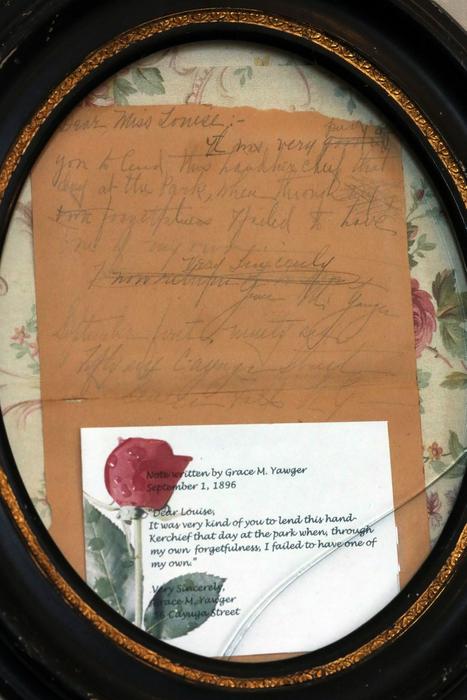 Dear Miss Louise:-
It was very kind of
you to lend this handkerchief that
day at the Park, when through my
own forgetfulness I failed to have
one of my own.
Very Sincerely
Grace M. Yawger
Cayuga Street
Note written by Grace M. Yawger
September 1, 1896
"Dear Louise,
It was very kind of you to lend this hand-
Kerchief that day at the park when, through
my own forgetfulness, I failed to have one of
my own."
Very Sincerely,
Grace M. Yawger
56 Cayuga Street